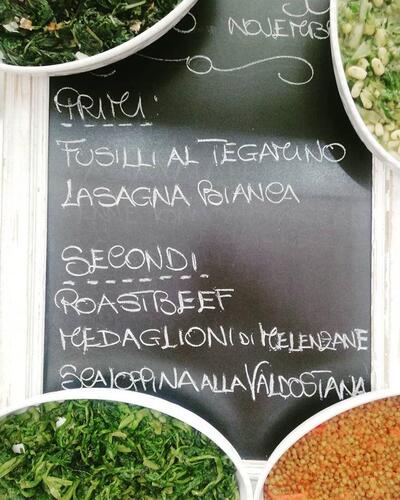 NOVEMBRE
PRIMI:
FUSILLI AL TEGAMINO
LASAGNA BIANCA
SECONDI
ROASTBEEF
MEDAGLIONI DI MELENZANE
SCALOPPINA ALLA VALDOSTANA